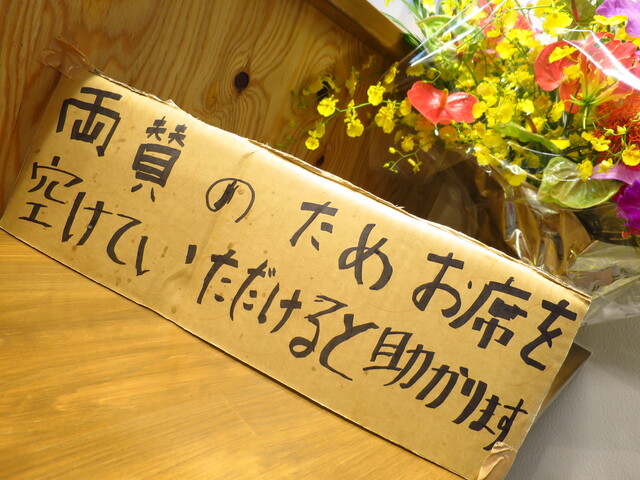 両賛のためお席を
空けていただけると助かります